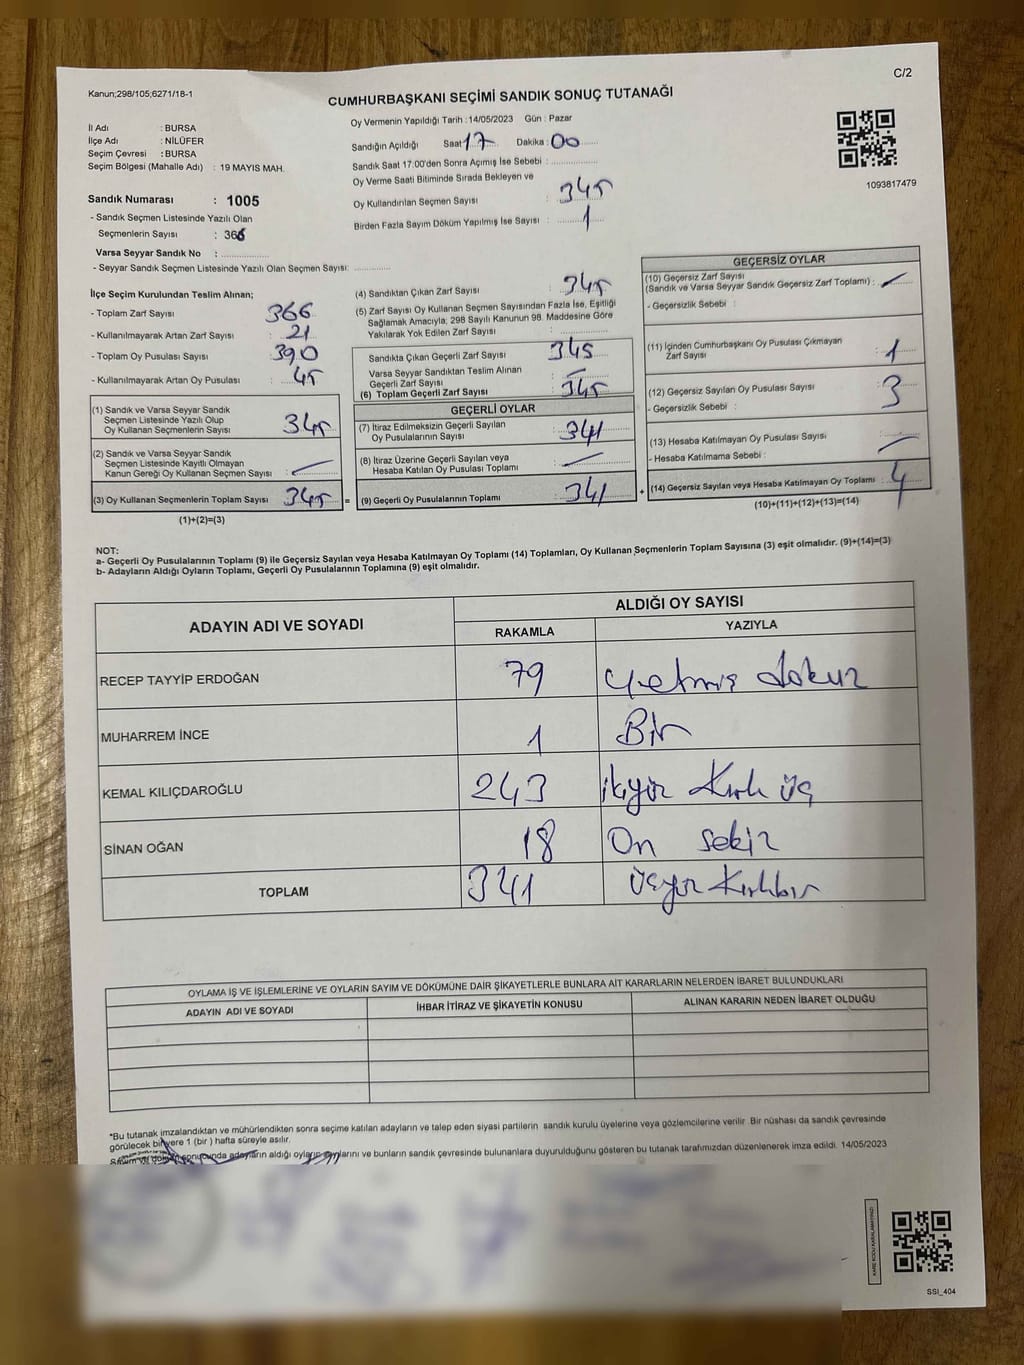 C/2
Kanun;298/105;6271/18-1
CUMHURBAŞKANI SEÇİMİ SANDIK SONUÇ TUTANAĞI
Oy Vermenin Yapıldığı Tarih : 14/05/2023 Gün : Pazar
İl Adı : BURSA
İlçe Adı : NİLÜFER
Seçim Çevresi : BURSA
Seçim Bölgesi (Mahalle Adı) : 19 MAYIS MAH.
Sandığın Açıldığı Saat 17 Dakika : 00
Sandık Saat 17:00'den Sonra Açımış İse Sebebi :
Oy Verme Saati Bitiminde Sırada Bekleyen ve
Oy Kullandırılan Seçmen Sayısı : 345
Birden Fazla Sayım Döküm Yapılmış İse Sayısı : 1
1093817479
Sandık Numarası : 1005
- Sandık Seçmen Listesinde Yazılı Olan
Seçmenlerin Sayısı : 366
Varsa Seyyar Sandık No :
- Seyyar Sandık Seçmen Listesinde Yazılı Olan Seçmen Sayısı:
İlçe Seçim Kurulundan Teslim Alınan;
- Toplam Zarf Sayısı : 366
- Kullanılmayarak Artan Zarf Sayısı : 21
- Toplam Oy Pusulası Sayısı : 390
- Kullanılmayarak Artan Oy Pusulası : 45
(1) Sandık ve Varsa Seyyar Sandık
Seçmen Listesinde Yazılı Olup
Oy Kullanan Seçmenlerin Sayısı : 345
(2) Sandık ve Varsa Seyyar Sandık
Seçmen Listesinde Kayıtlı Olmayan
Kanun Gereği Oy Kullanan Seçmen Sayısı : —
(3) Oy Kullanan Seçmenlerin Toplam Sayısı : 345 =
(1)+(2)=(3)
(4) Sandıktan Çıkan Zarf Sayısı : 345
(5) Zarf Sayısı Oy Kullanan Seçmen Sayısından Fazla İse, Eşitliği
Sağlamak Amacıyla; 298 Sayılı Kanunun 98. Maddesine Göre
Yakılarak Yok Edilen Zarf Sayısı :
Sandıkta Çıkan Geçerli Zarf Sayısı : 345
Varsa Seyyar Sandıktan Teslim Alınan
Geçerli Zarf Sayısı : —
(6) Toplam Geçerli Zarf Sayısı : 345
GEÇERLİ OYLAR
(7) İtiraz Edilmeksizin Geçerli Sayılan
Oy Pusulalarının Sayısı : 341
(8) İtiraz Üzerine Geçerli Sayılan veya
Hesaba Katılan Oy Pusulası Toplamı : —
(9) Geçerli Oy Pusulalarının Toplamı : 341 +
GEÇERSİZ OYLAR
(10) Geçersiz Zarf Sayısı
(Sandık ve Varsa Seyyar Sandık Geçersiz Zarf Toplamı) : —
- Geçersizlik Sebebi :
(11) İçinden Cumhurbaşkanı Oy Pusulası Çıkmayan
Zarf Sayısı : 1
(12) Geçersiz Sayılan Oy Pusulası Sayısı : 3
- Geçersizlik Sebebi :
(13) Hesaba Katılmayan Oy Pusulası Sayısı : —
- Hesaba Katılmama Sebebi :
(14) Geçersiz Sayılan veya Hesaba Katılmayan Oy Toplamı : 4
(10)+(11)+(12)+(13)=(14)
NOT:
a- Geçerli Oy Pusulalarının Toplamı (9) ile Geçersiz Sayılan veya Hesaba Katılmayan Oy Toplamı (14) Toplamları, Oy Kullanan Seçmenlerin Toplam Sayısına (3) eşit olmalıdır. (9)+(14)=(3)
b- Adayların Aldığı Oyların Toplamı, Geçerli Oy Pusulalarının Toplamına (9) eşit olmalıdır.
ADAYIN ADI VE SOYADI ALDIĞI OY SAYISI
RAKAMLA YAZIYLA
RECEP TAYYİP ERDOĞAN 79 yetmiş dokuz
MUHARREM İNCE 1 Bir
KEMAL KILIÇDAROĞLU 243 ikiyüz Kırk üç
SİNAN OĞAN 18 On sekiz
TOPLAM 341 üçyüz Kırkbir
OYLAMA İŞ VE İŞLEMLERİNE VE OYLARIN SAYIM VE DÖKÜMÜNE DAİR ŞİKAYETLERLE BUNLARA AİT KARARLARIN NELERDEN İBARET BULUNDUKLARI
ADAYIN ADI VE SOYADI İHBAR İTİRAZ VE ŞİKAYETİN KONUSU ALINAN KARARIN NEDEN İBARET OLDUĞU
*Bu tutanak imzalandıktan ve mühürlendikten sonra seçime katılan adayların ve talep eden siyasi partilerin sandık kurulu üyelerine veya gözlemcilerine verilir. Bir nüshası da sandık çevresinde
görülecek bir yere 1 (bir ) hafta süreyle asılır.
Sayım ve döküm sonucunda adayların aldığı oyların sayılarını ve bunların sandık çevresinde bulunanlara duyurulduğunu gösteren bu tutanak tarafımızdan düzenlenerek imza edildi. 14/05/2023
KARE KODU KARALAMAYINIZ!
SSI_404